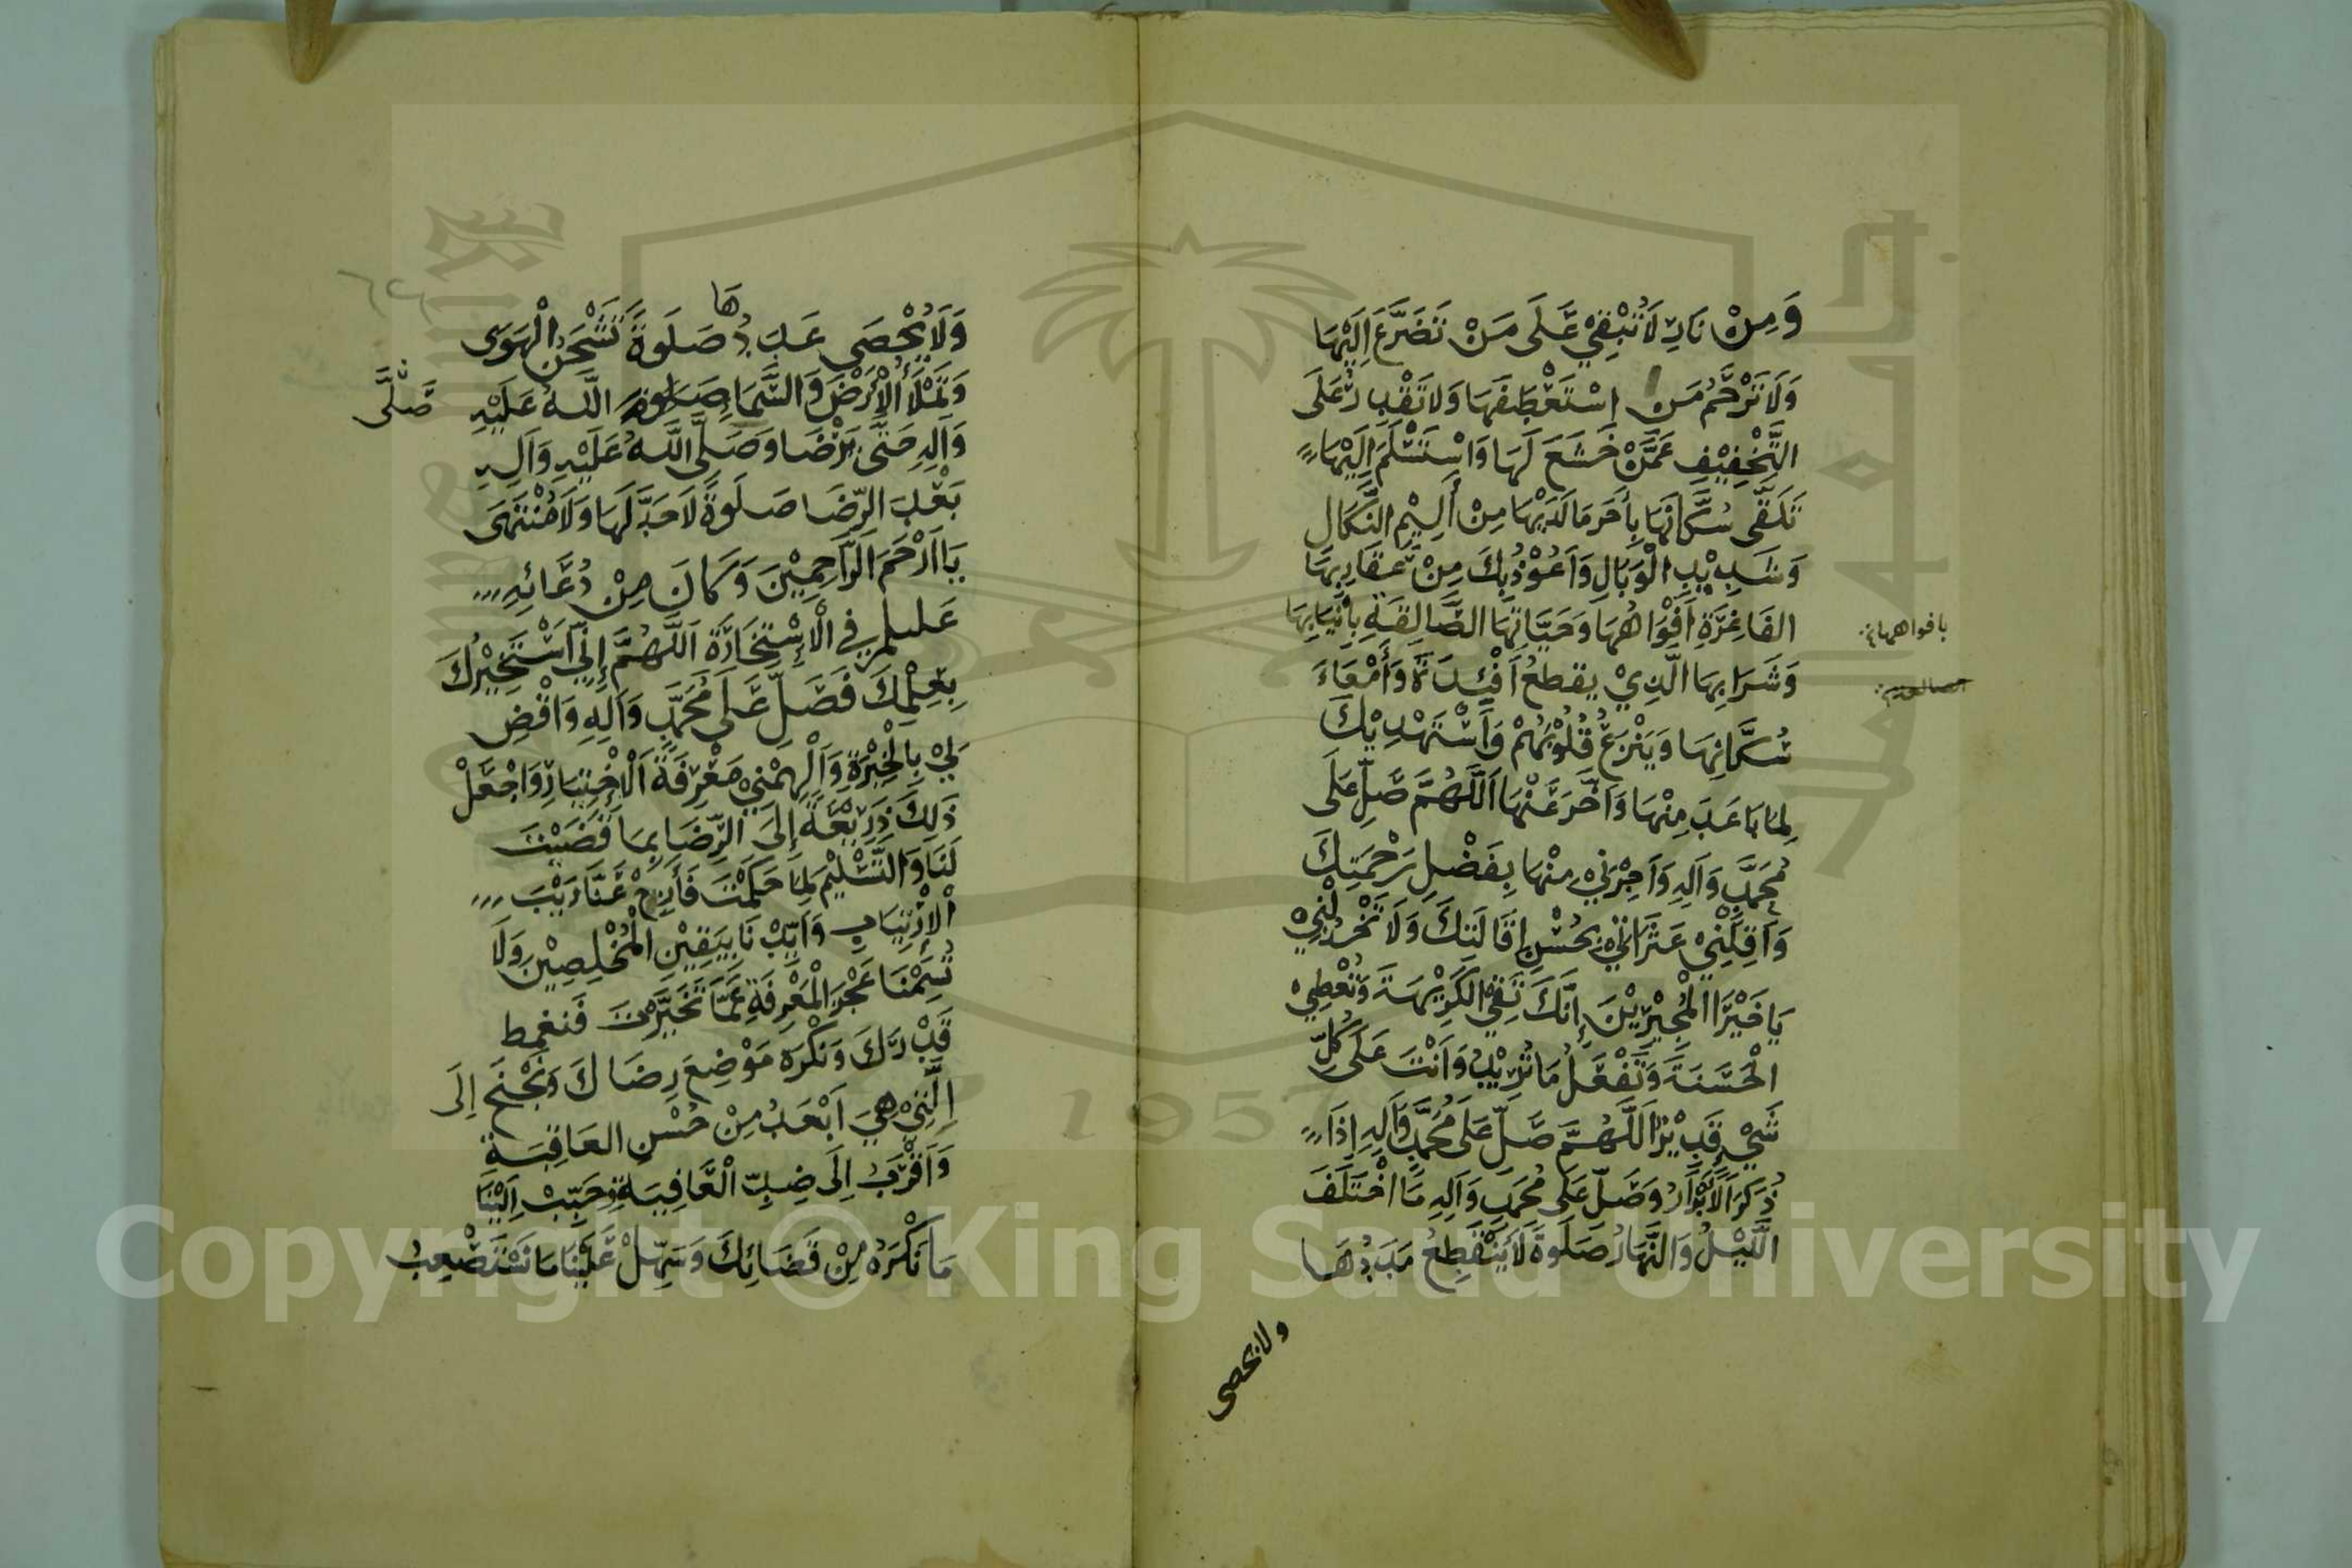 وَمِنْ نَارٍ لَا تُبْقِيْ عَلَى مَنْ تَضَرَّعَ إِلَيْهَا
وَلَا تَرْحَمُ مَنِ اسْتَعْطَفَهَا وَلَا تَقْدِرُ عَلَى
التَّخْفِيْفِ عَمَّنْ خَشَعَ لَهَا وَاسْتَسْلَمَ إِلَيْهَا
تَلَقَّى سُكَّانَهَا بِأَحَرِّ مَا لَدَيْهَا مِنْ أَلِيْمِ النَّكَالِ
وَشَدِيْدِ الْوَبَالِ وَأَعُوْذُ بِكَ مِنْ عَقَارِبِهَا
الفَاغِرَةِ أَفْوَاهُهَا وَحَيَّاتِهَا الصَّالِقَةِ بِأَنْيَابِهَا
بافواهها
وَشَرَابِهَا الَّذِيْ يقطعُ أَفْئِدَةَ وَأَمْعَاءَ
سُكَّانِهَا وَيَنْزِعُ قُلُوْبَهُمْ وَأَسْتَهْدِيْكَ
لِمَا بَاعَدَ مِنْهَا وَأَخَّرَ عَنْهَا اَللَّهُمَّ صَلِّ عَلَى
مُحَمَّدٍ وَآلِهِ وَأَجِرْنِيْ مِنْهَا بِفَضْلِ رَحْمَتِكَ
وَأَقِلْنِيْ عَثَرَاتِيْ بِحُسْنِ إِقَالَتِكَ وَلَا تَخْذُلْنِيْ
يَا خَيْرَ الْمُجِيْرِيْنَ إِنَّكَ تَقِيْ الكَرِيْهَةَ وَتُعْطِيْ
الْحَسَنَةَ وَتَفْعَلُ مَا تُرِيْدُ وَأَنْتَ عَلَى كُلِّ
شَيْءٍ قَدِيْرٌ اَللَّهُمَّ صَلِّ عَلَى مُحَمَّدٍ وَآلِهِ إِذَا
ذُكِرَ الْأَبْرَارُ وَصَلِّ عَلَى مُحَمَّدٍ وَآلِهِ مَا اخْتَلَفَ
اللَّيْلُ وَالنَّهَارُ صَلَوةً لَا يَنْقَطِعُ مَدَدُهَا
ولا يحصى
وَلَا يُحْصَى عَدَدُهَا صَلَوةً تَشْحَنُ الْهَوَى
وَتَمْلَأُ الْأَرْضَ وَالسَّمَاء صَلَّى اللهُ عَلَيْهِ
وَآلِهِ حَتَّى يَرْضَا وَصَلَّى اللهُ عَلَيْهِ وَآلِهِ
بَعْدَ الرِّضَا صَلَوةً لَا حَدَّ لَهَا وَلَا مُنْتَهَى
يَا أَرْحَمَ الرَّاحِمِيْنَ وَكَانَ مِنْ دُعَائِهِ
في الْإِسْتِخَارَةِ اَللَّهُمَّ إِنِّيْ أَسْتَخِيْرُكَ
بِعِلْمِكَ فَصَلِّ عَلَى مُحَمَّدٍ وَآلِهِ وَاقْضِ
لِيْ بِالْخِيْرَةِ وَأَلْهِمْنِيْ مَعْرِفَةَ الْإِخْتِيَارِ وَاجْعَلْ
ذَلِكَ ذَرِيْعَةً إِلَى الرِّضَا بِمَا قَضَيْتَ
لَنَا وَالتَّسْلِيْمِ لِمَا حَكَمْتَ فَأَزِحْ عَنَّا رَيْبَ
الْإِرْتِيَابِ وَأَيِّدْنَا بِيَقِيْنِ الْمُخْلِصِيْنَ وَلَا
تُسِمْنَا عَجْزَ الْمَعْرِفَةِ عَمَّا تَخَيَّرْتَ فَنغمِط
قَدْرَكَ وَنَكْرَهَ مَوْضِعَ رِضَاكَ وَنَجْنَحَ إِلَى
الَّتِيْ هِيَ أَبْعَدُ مِنْ حُسْنِ العَاقِبَةِ
وَأَقْرَبُ إِلَى ضِدِّ الْعَافِيَةِ وَحَبِّبْ إِلَيْنَا
مَا نَكْرَهُ مِنْ قَضَائِكَ وَسَهِّلْ عَلَيْنَا مَا نَسْتَصْعِبُ
Copyright © King Saud University
1957